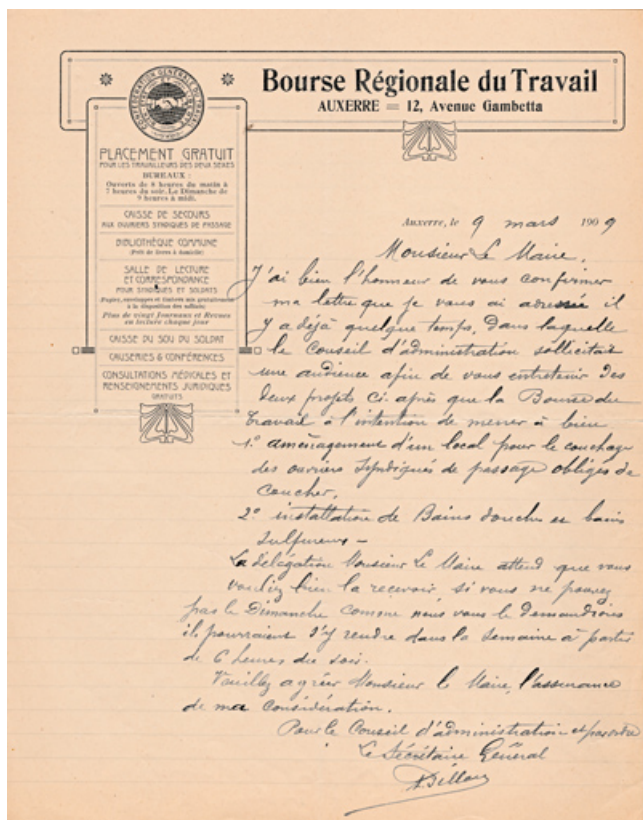 Bourse Régionale du Travail
AUXERRE = 12, Avenue Gambetta
CONFÉDÉRATION GÉNÉRALE DU TRAVAIL
PLACEMENT GRATUIT
POUR LES TRAVAILLEURS DES DEUX SEXES
BUREAUX :
Ouverts de 8 heures du matin à
7 heures du soir. Le Dimanche de
9 heures à midi.
CAISSE DE SECOURS
AUX OUVRIERS SYNDIQUÉS DE PASSAGE
BIBLIOTHÈQUE COMMUNE
(Prêt de livres à domicile)
SALLE DE LECTURE
ET CORRESPONDANCE
POUR SYNDIQUÉS ET SOLDATS
(Papier, enveloppes et timbres mis gratuitement
à la disposition des soldats)
Plus de vingt Journaux et Revues
en lecture chaque jour
CAISSE DU SOU DU SOLDAT
CAUSERIES & CONFÉRENCES
CONSULTATIONS MÉDICALES ET
RENSEIGNEMENTS JURIDIQUES
GRATUITS
Auxerre, le 9 mars 1909
Monsieur Le Maire,
J'ai bien l'honneur de vous confirmer
ma lettre que je vous ai adressée il
y a déjà quelque temps, dans laquelle
le Conseil d'administration sollicitait
une audience afin de vous entretenir des
deux projets ci-après que la Bourse du
Travail à l'intention de mener à bien
1.° aménagement d'un local pour le couchage
des ouvriers Syndiqués de passage obligés de
coucher.
2.° installation de Bains douches et bains
sulfureux –
La délégation Monsieur Le Maire attend que vous
vouliez bien la recevoir, si vous ne pouvez
pas le Dimanche comme nous vous le demandions
ils pourraient s'y rendre dans la semaine à partir
de 6 heures du soir.
Veuillez agréer Monsieur le Maire, l'assurance
de ma considération.
Pour le Conseil d'administration et par ordre
Le Sécrétaire Général